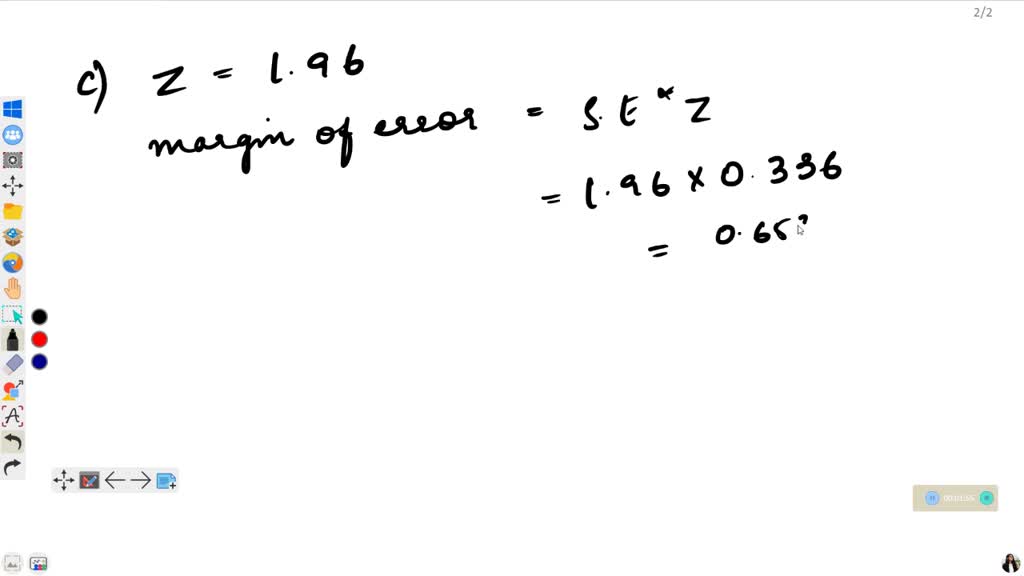 2/2
c) Z = 1.96
margin of error = S.E * Z
= 1.96 x 0.336
= 0.65
00:01:55